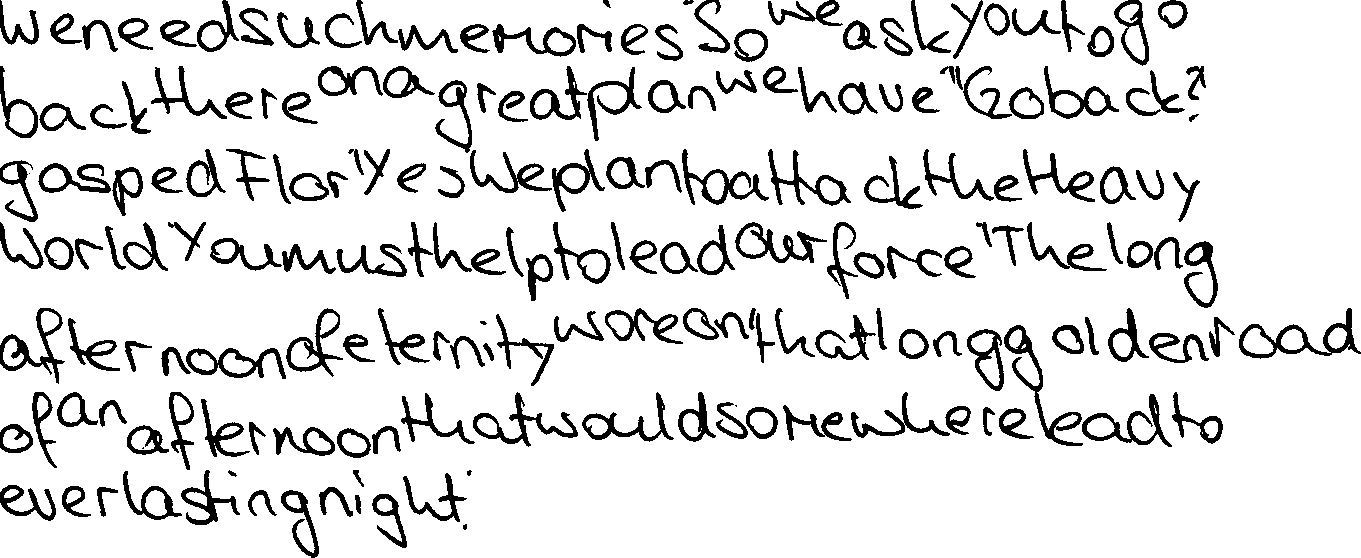 We need such memories "So we ask you to go
back there on a great plan we have "Go back?"
gasped Flor "Yes We plan to attack the Heavy
World You must help to lead our force" The long
afternoon of eternity wore on, that long golden road
of an afternoon that would somewhere lead to
everlasting night.